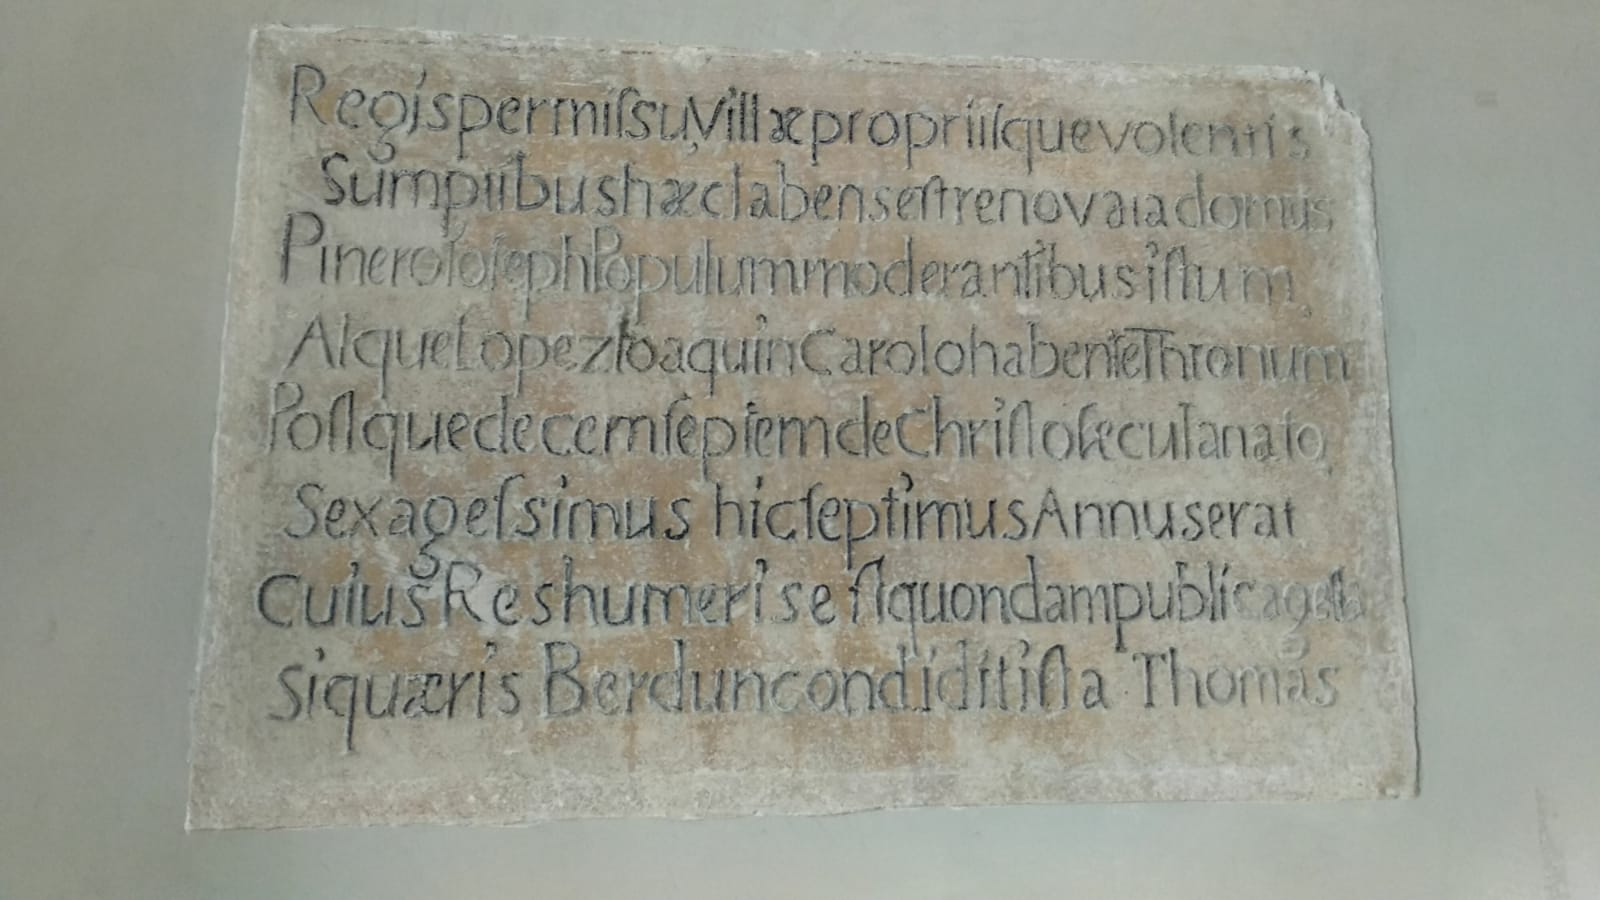 Regis permiſsu, Villæ propriiſque volentis
Sumptibus hæc labens eſt renovata domus
Pinero Ioſeph Populum moderantibus iſtum,
Atque Lopez Ioaquin Carolo habente Thronum
Poſtque decem ſeptem de Chriſto ſecula nato,
Sexageſsimus hic ſeptimus Annus erat
Cuius Res humeris eſt quondam publica geſta
si quæris Berdun condidit iſta Thomas